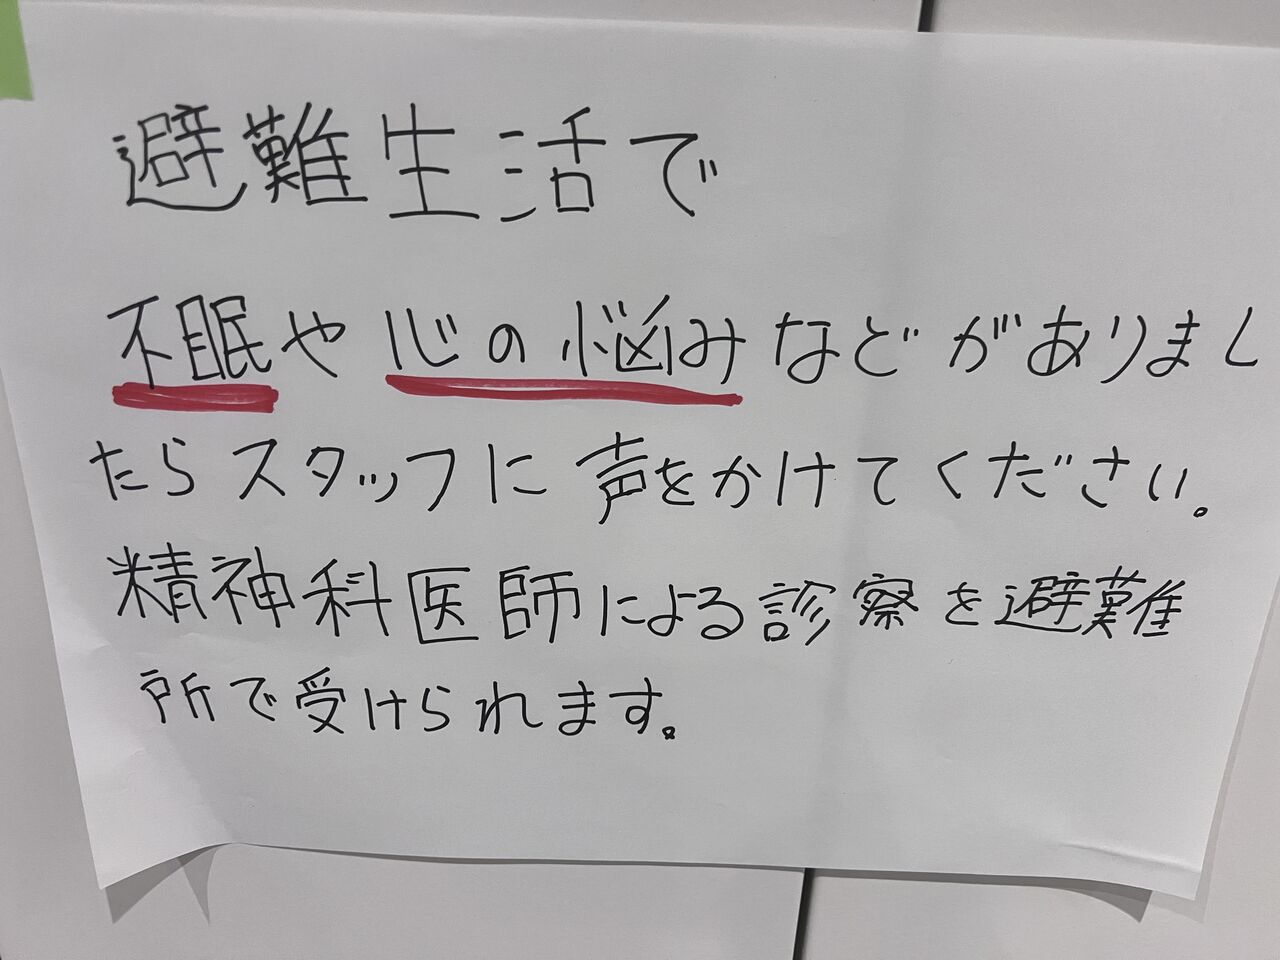 避難生活で
不眠や心の悩みなどがありまし
たらスタッフに声をかけてください。
精神科医師による診察を避難
所で受けられます。